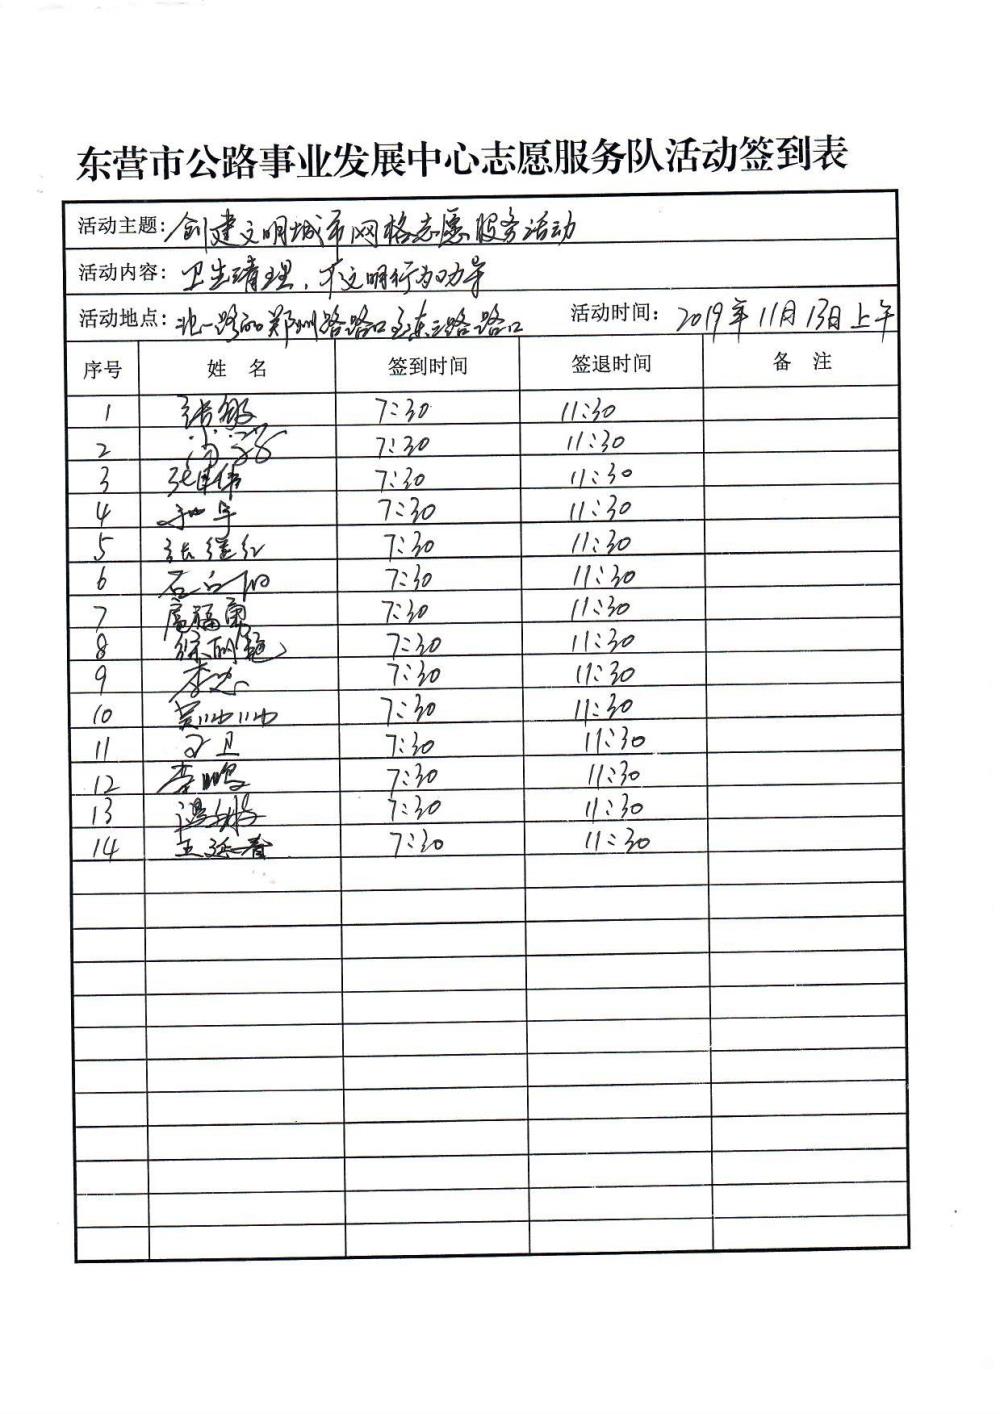 东营市公路事业发展中心志愿服务队活动签到表
活动主题：创建文明城市网格志愿服务活动
活动内容：卫生清理，不文明行为劝导
活动地点：北一路的郑州路路口至东三路路口 活动时间：2019年11月13日上午
序号 姓 名 签到时间 签退时间 备 注
1 张敏 7:30 11:30
2 7:30 11:30
3 7:30 11:30
4 7:30 11:30
5 张继红 7:30 11:30
6 7:30 11:30
7 扈福勇 7:30 11:30
8 7:30 11:30
9 李忠 7:30 11:30
10 7:30 11:30
11 7:30 11:30
12 李鹏 7:30 11:30
13 7:30 11:30
14 王延春 7:30 11:30